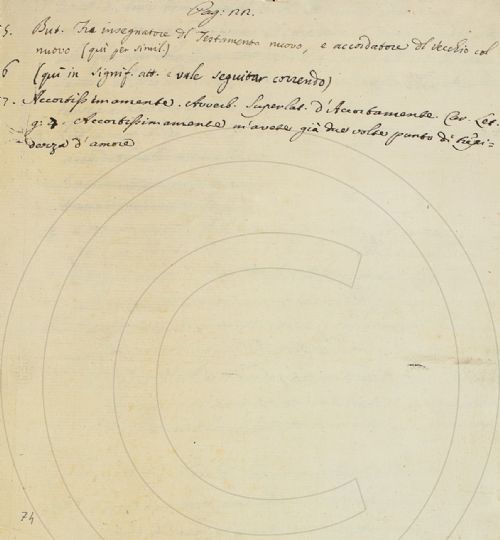 Pag: 22.
5. But. Fra insegnatore del Testamento nuovo, e accordatore del Vecchio col
nuovo (quì per simil.)
6 (quì in signif. att. e vale seguitar correndo)
7. Accortissimamente. Avverb. Superlat. d'Accortamente. Car. Let.
g. 7. Accortissimamente m'avete già due volte punto di
denza d'amore
74